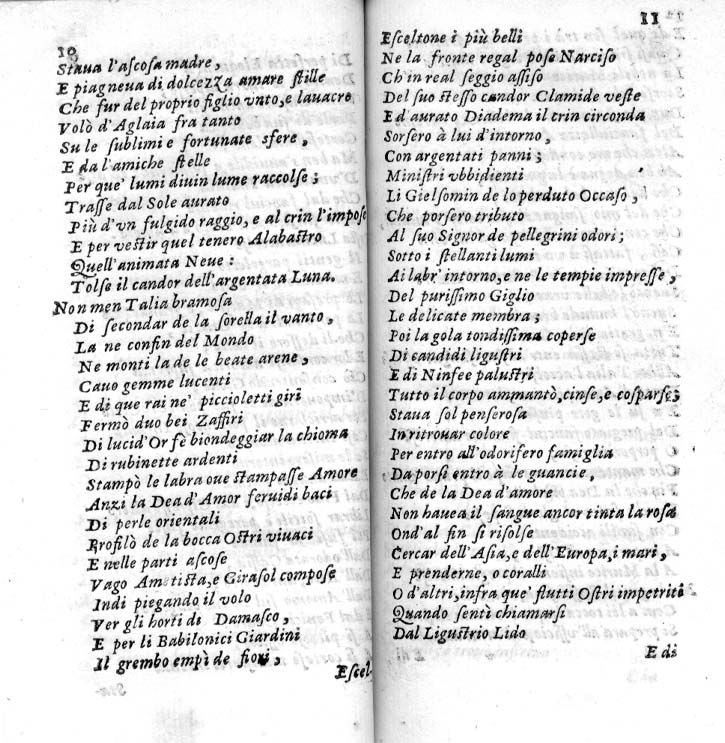 10
Staua l'ascosa madre,
E piagneua di dolcezza amare stille
Che fur del proprio figlio vnto, e lauacro
Volò d'Aglaia fra tanto
Su le sublimi e fortunate sfere,
E da l'amiche stelle
Per que' lumi diuin lume raccolse;
Trasse dal Sole aurato
Più d'vn fulgido raggio, e al crin l'impose
E per vestir quel tenero Alabastro
Quell'animata Neue:
Tolse il candor dell'argentata Luna.
Non men Talia bramosa
Di secondar de la sorella il vanto,
La ne confin del Mondo
Ne monti la de le beate arene,
Cauo gemme lucenti
E di que rai ne' piccioletti giri
Fermò duo bei Zaffiri
Di lucid'Or fè biondeggiar la chioma
Di rubinette ardenti
Stampò le labra oue stampasse Amore
Anzi la Dea d'Amor feruidi baci
Di perle orientali
Profilò de la bocca Ostri viuaci
E nelle parti ascose
Vago Amatista, e Girasol compose
Indi piegando il volo
Ver gli horti di Damasco,
E per li Babilonici Giardini
Il grembo empì de fiori,
Escel-
11
Esceltone i più belli
Ne la fronte regal pose Narciso
Ch'in real seggio assiso
Del suo stesso candor Clamide veste
E d'aurato Diadema il crin circonda
Sorsero à lui d'intorno,
Con argentati panni;
Ministri vbbidienti
Li Gielsomin de lo perduto Occaso,
Che porsero tributo
Al suo Signor de pellegrini odori;
Sotto i stellanti lumi
Ai labr' intorno, e ne le tempie impresse,
Del purissimo Giglio
Le delicate membra;
Poi la gola tondissima coperse
Di candidi ligustri
E di Ninfee palustri
Tutto il corpo ammantò, cinse, e cosparse;
Staua sol penserosa
In ritrouar colore
Per entro all'odorifero famiglia
Da porsi entro à le guancie,
Che de la Dea d'amore
Non hauea il sangue ancor tinta la rosa
Ond'al fin si risolse
Cercar dell'Asia, e dell'Europa, i mari,
E prenderne, o coralli
O d'altri, infra que' flutti Ostri impetriti
Quando sentì chiamarsi
Dal Ligustrio Lido
E di